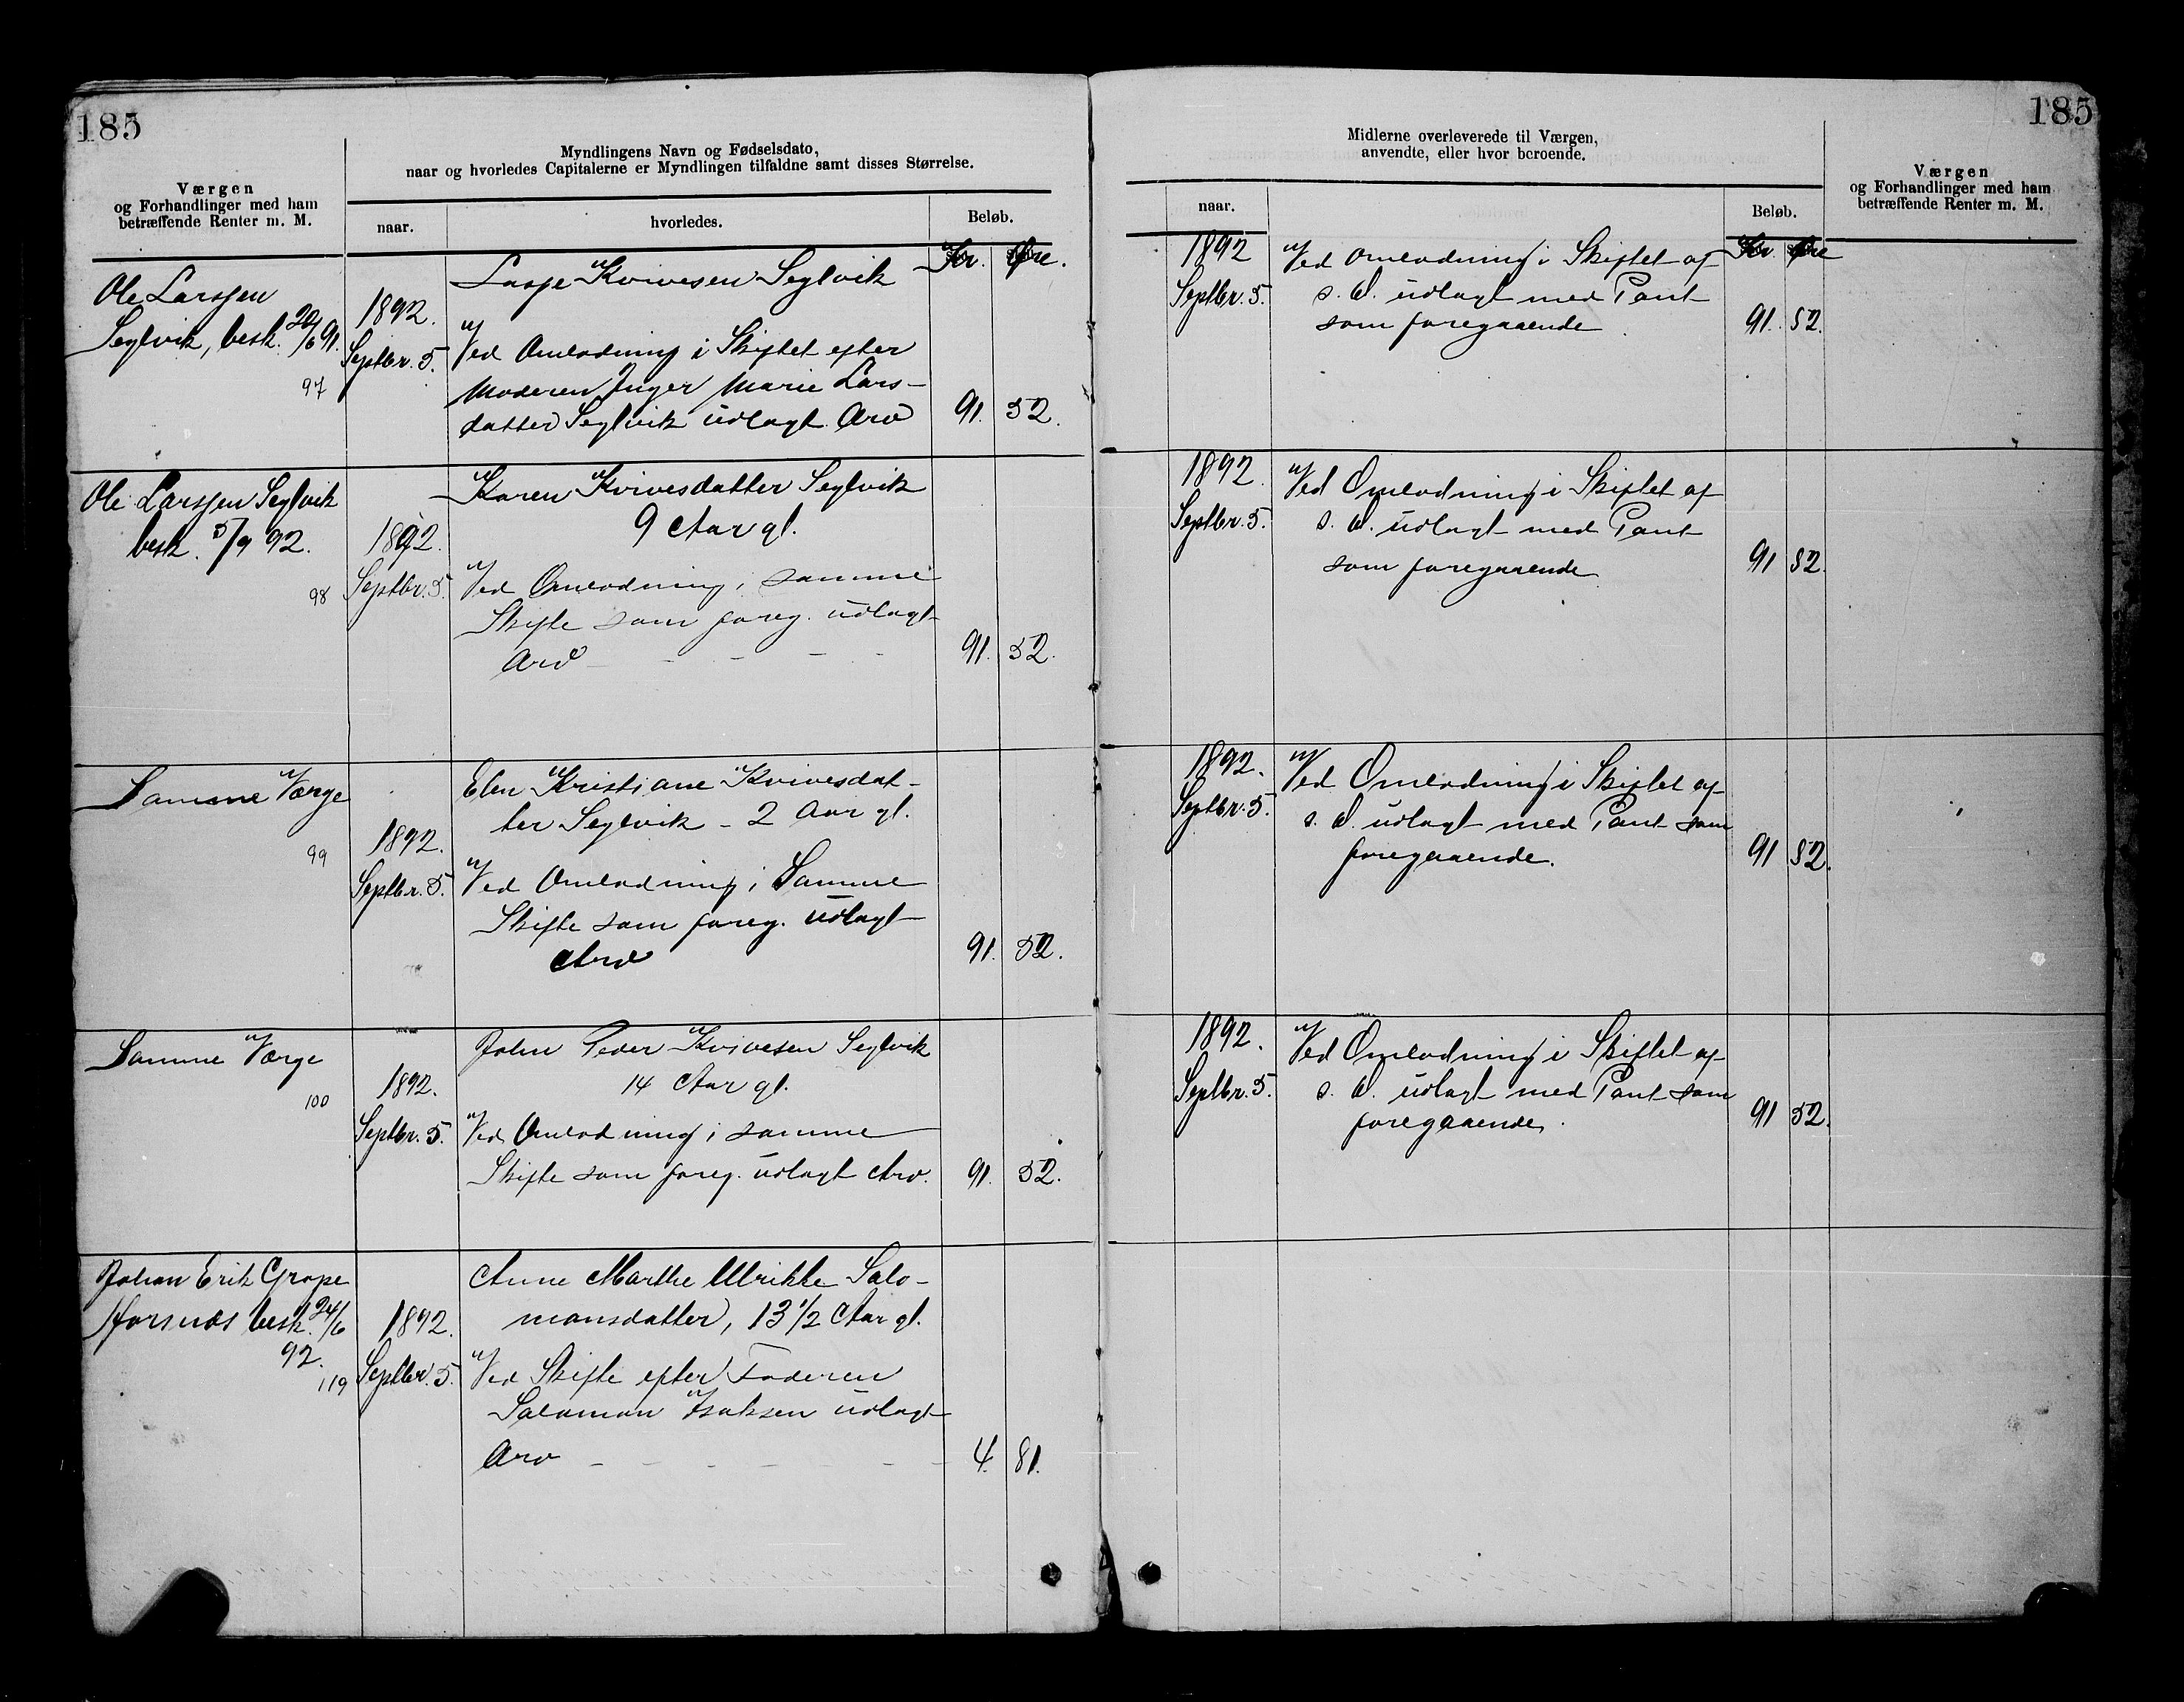 185
185
Værgen
og Forhandlinger med ham
betræffende Renter m. M.
Myndlingens Navn og Fødselsdato,
naar og hvorledes Capitalerne er Myndlingen tilfaldne samt disses Størrelse.
naar.
hvorledes.
Beløb.
Kr. Øre.
Midlerne overleverede til Værgen,
anvendte, eller hvor beroende.
naar.
Beløb.
Kr. Øre
Værgen
og Forhandlinger med ham
betræffende Renter m. M.
Ole Larssen
Seglvik, besk. 22/6 91.
97
1892.
Septbr. 5.
Kvivesen Seglvik
Ved Omlodning i Skiftet efter
Moderen Inger Marie Lars-
datter Seglvik udlagt Arv 91. 52.
1892
Septbr. 5.
Ved Omlodning i Skiftet af
s. D. udlagt med Pant
som foregaaende 91. 52.
Ole Larssen Seglvik
besk. 5/9 92.
98
1892.
Septbr. 5.
Karen Kvivesdatter Seglvik
9 Aar gl.
Ved Omlodning i samme
Skifte som foreg. udlagt
Arv - - - - - 91. 52.
1892.
Septbr. 5.
Ved Omlodning i Skiftet af
s. D. udlagt med Pant
som foregaaende 91 52.
Samme Værge
99
1892.
Septbr. 5.
Elen Kristiane Kvivesdat-
ter Seglvik - 2 Aar gl.
Ved Omlodning i Samme
Skifte som foreg. udlagt
Arv 91. 52.
1892.
Septbr. 5.
Ved Omlodning i Skiftet af
s. D. udlagt med Pant som
foregaaende. 91 52.
Samme Værge
100
1892.
Septbr. 5.
John Peder Kvivesen Seglvik
14 Aar gl.
Ved Omlodning i samme
Skifte som foreg. udlagt Arv. 91. 52.
1892.
Septbr. 5.
Ved Omlodning i Skiftet af
s. D. udlagt med Pant som
foregaaende. 91 52.
Johan Erik Grape
besk. 24/6
92.
119
1892.
Septbr. 5.
Anne Marthe Ulrikke Salo-
monsdatter, 13 1/2 Aar gl.
Ved Skifte efter Faderen
Salomon Isaksen udlagt
Arv - - - - - - - 4. 81.